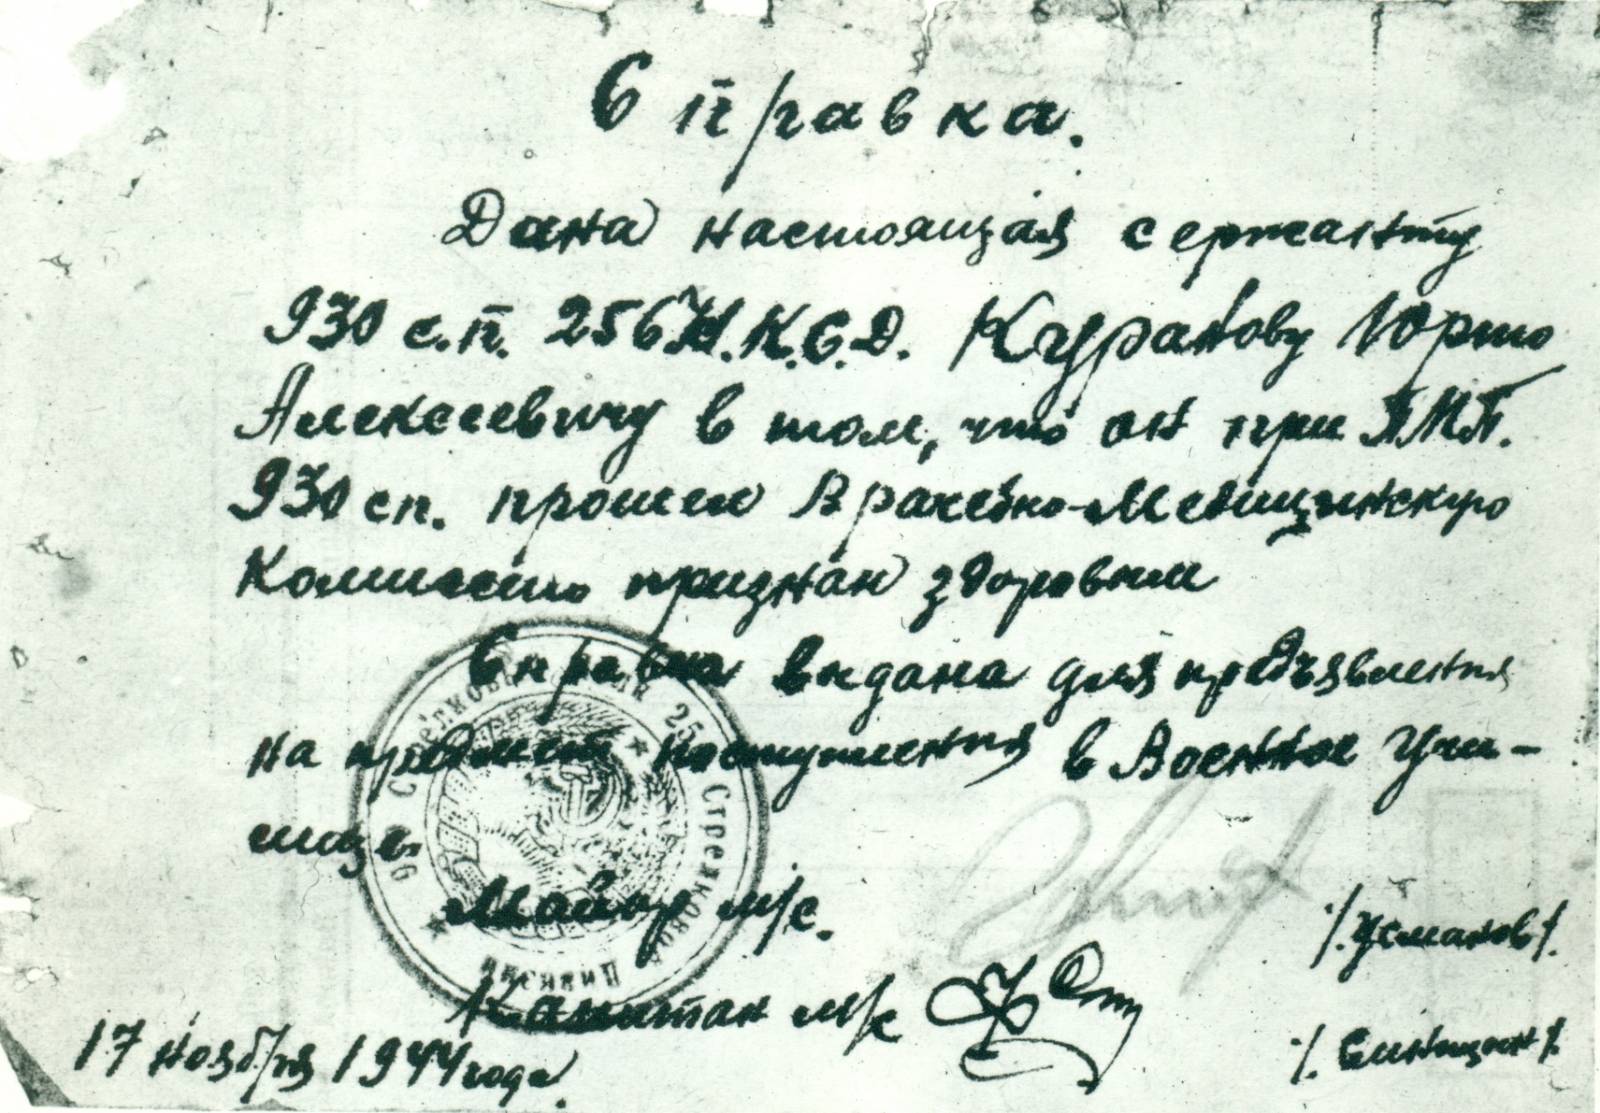 Справка.
Дана настоящая сержанту
930 с.п. 256 Н.К.С.Д. Куранову Юрию
Алексеевичу в том, что он при ПМП.
930 сп. прошел Врачебно-Медицинскую
Комиссию признан здоровым
Справка выдана для предъявления
на предмет поступления в Военное Учи-
лище.
Майор м/с. /.Усманов/.
Капитан м/с /. Синицин/.
17 ноября 1944 года.
Стрелковой
дивизии